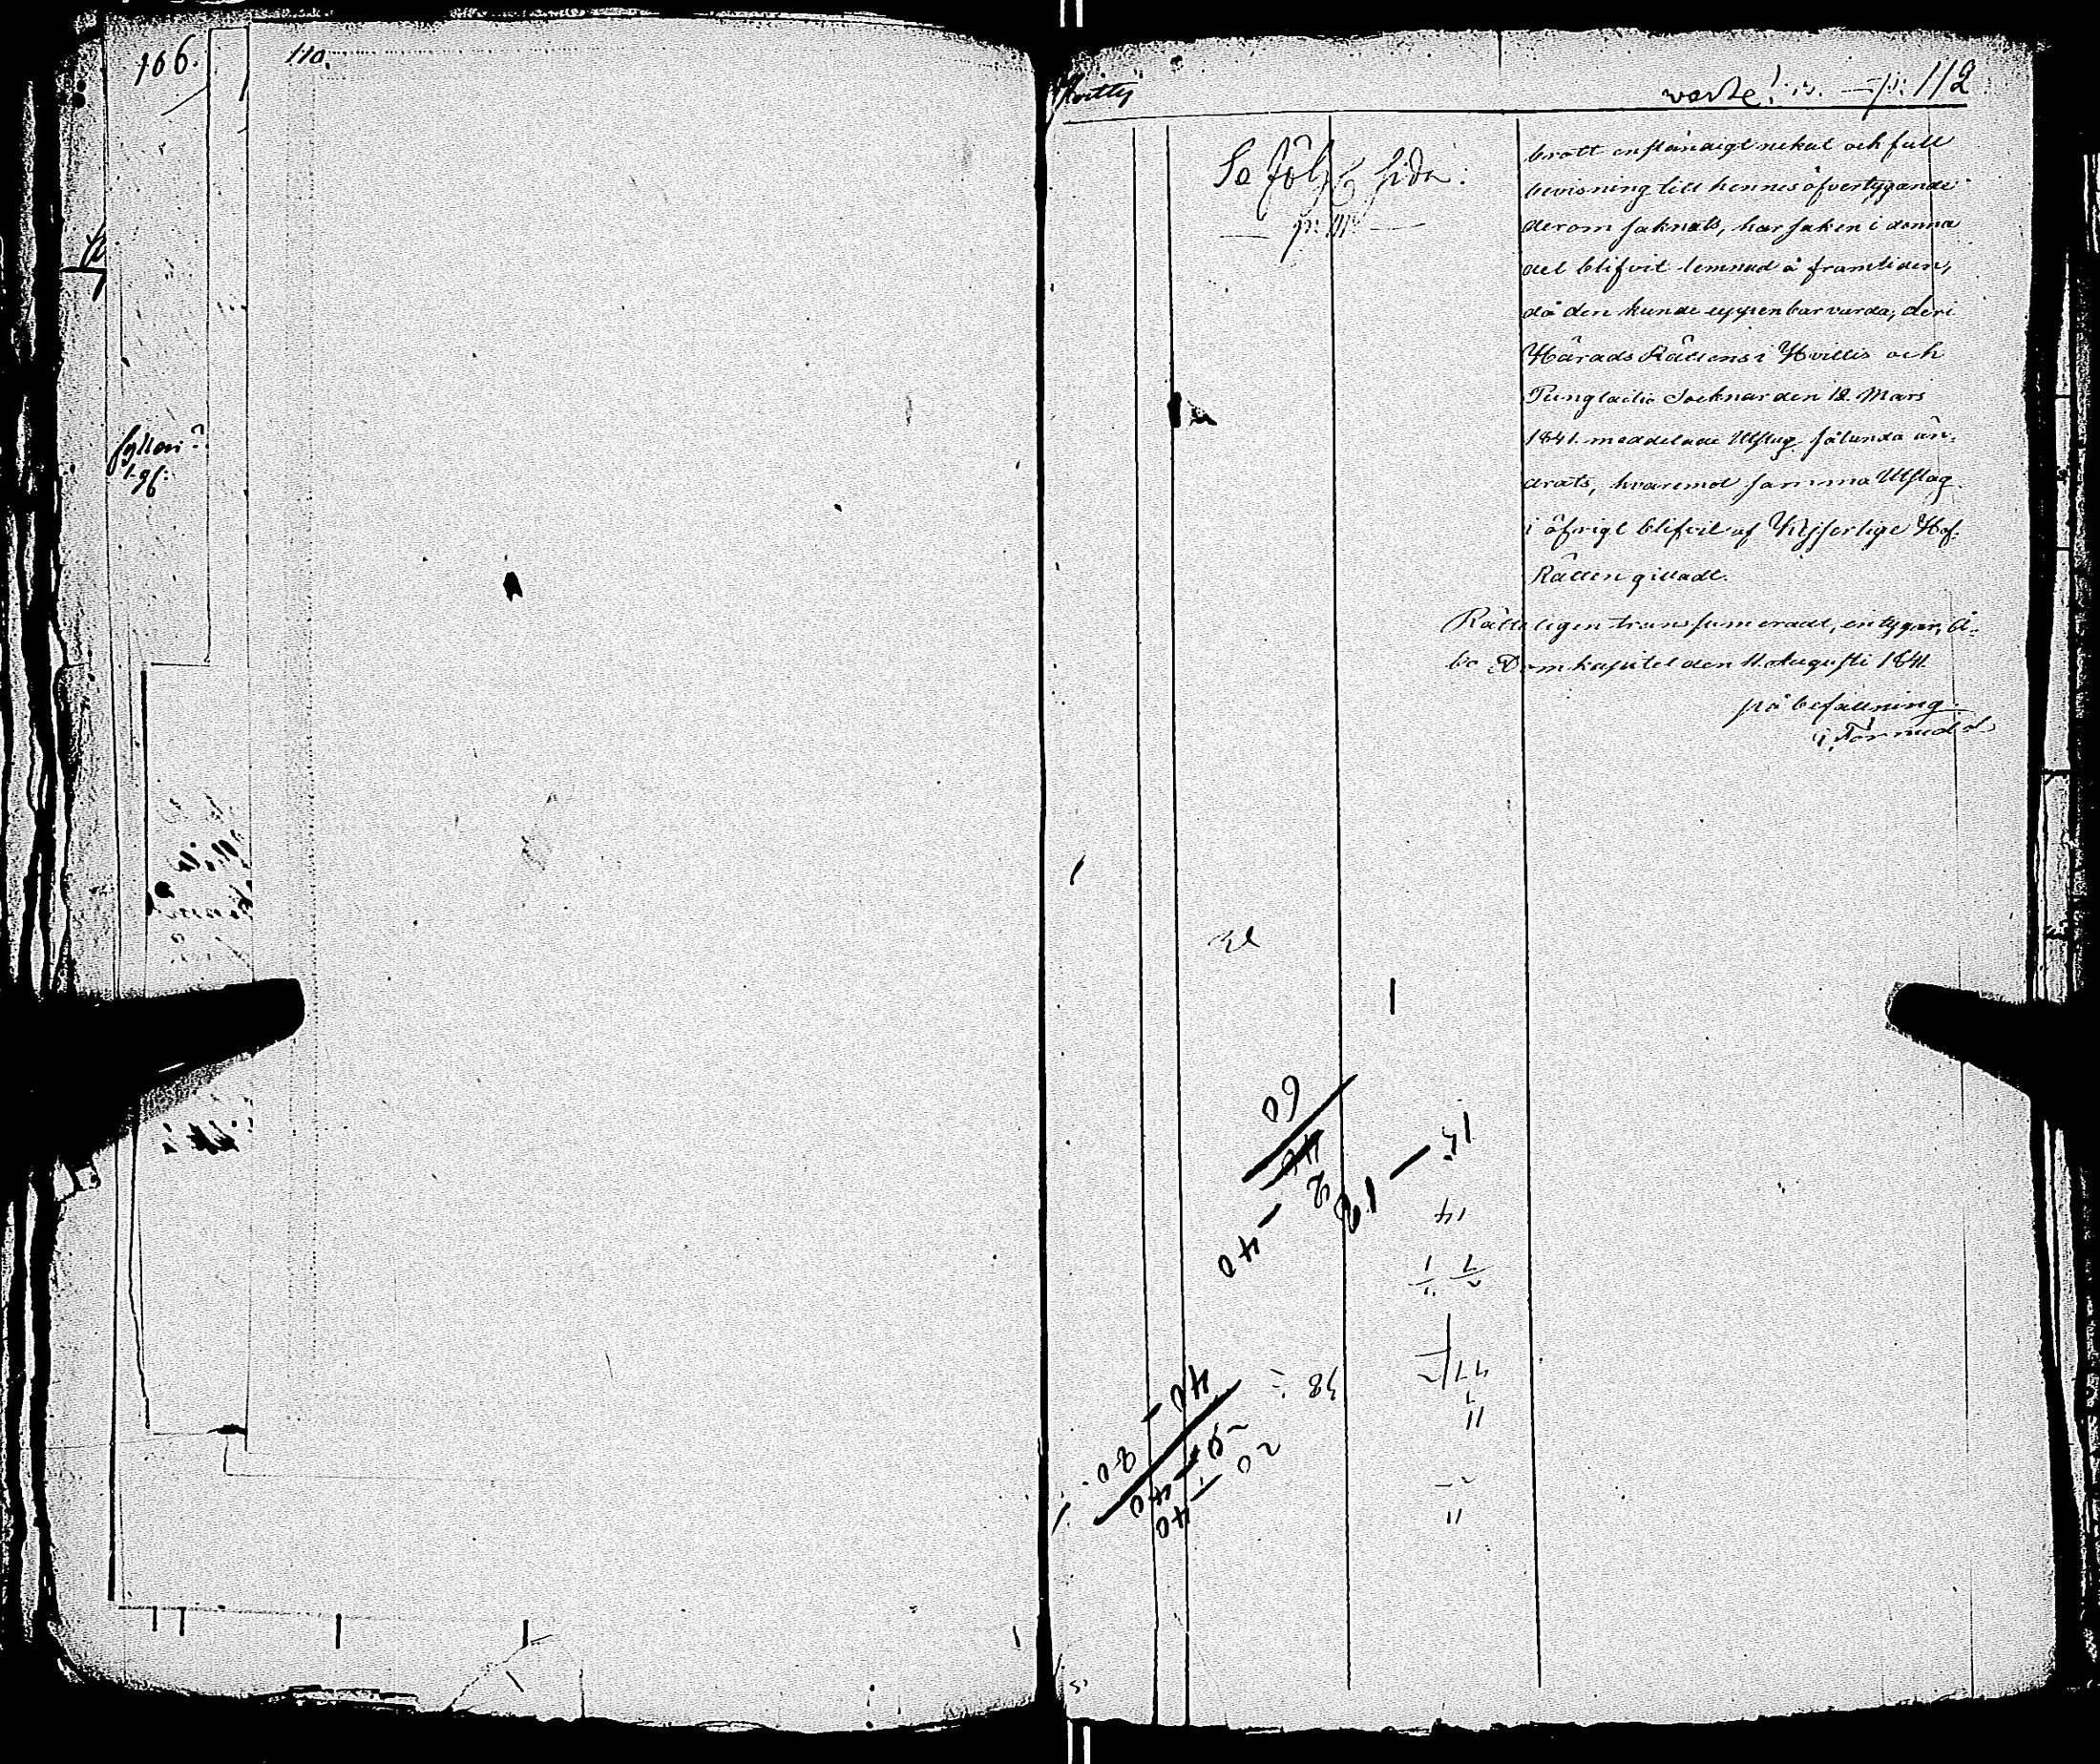 166.
110.
112
Se följ sida:
brott enständigt nekat och full
bevisning till hennes öfvertygande
derom saknats, har saken i denna
del blifvit lemnad å framtiden,
då den kunde uppenbar varda, deri
Härads Rättens i Hvittis och
Pungalaitio Socknar den 12 Mars
1841 meddelade Utslag sålunda än-
drats, hvaremot samma Utslag
i öfrigt blifvit af Kejserlige Hof-
Rätten gilladt.
Rätteligen transsumeradt, intygar, Å-
bo Domkapitel den 11 Augusti 1841
på befallning.
60
40
2
40
12 — 15
14
38
40
80
40
40
20
11
11